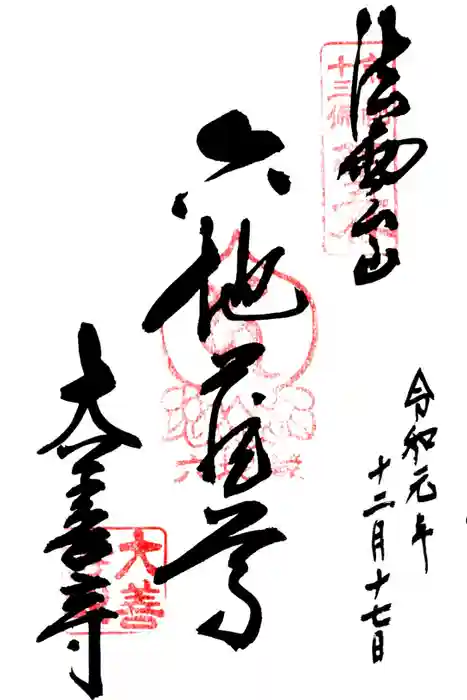 法雲山
令和元年
十二月十七日
六地蔵尊
大善寺
大善